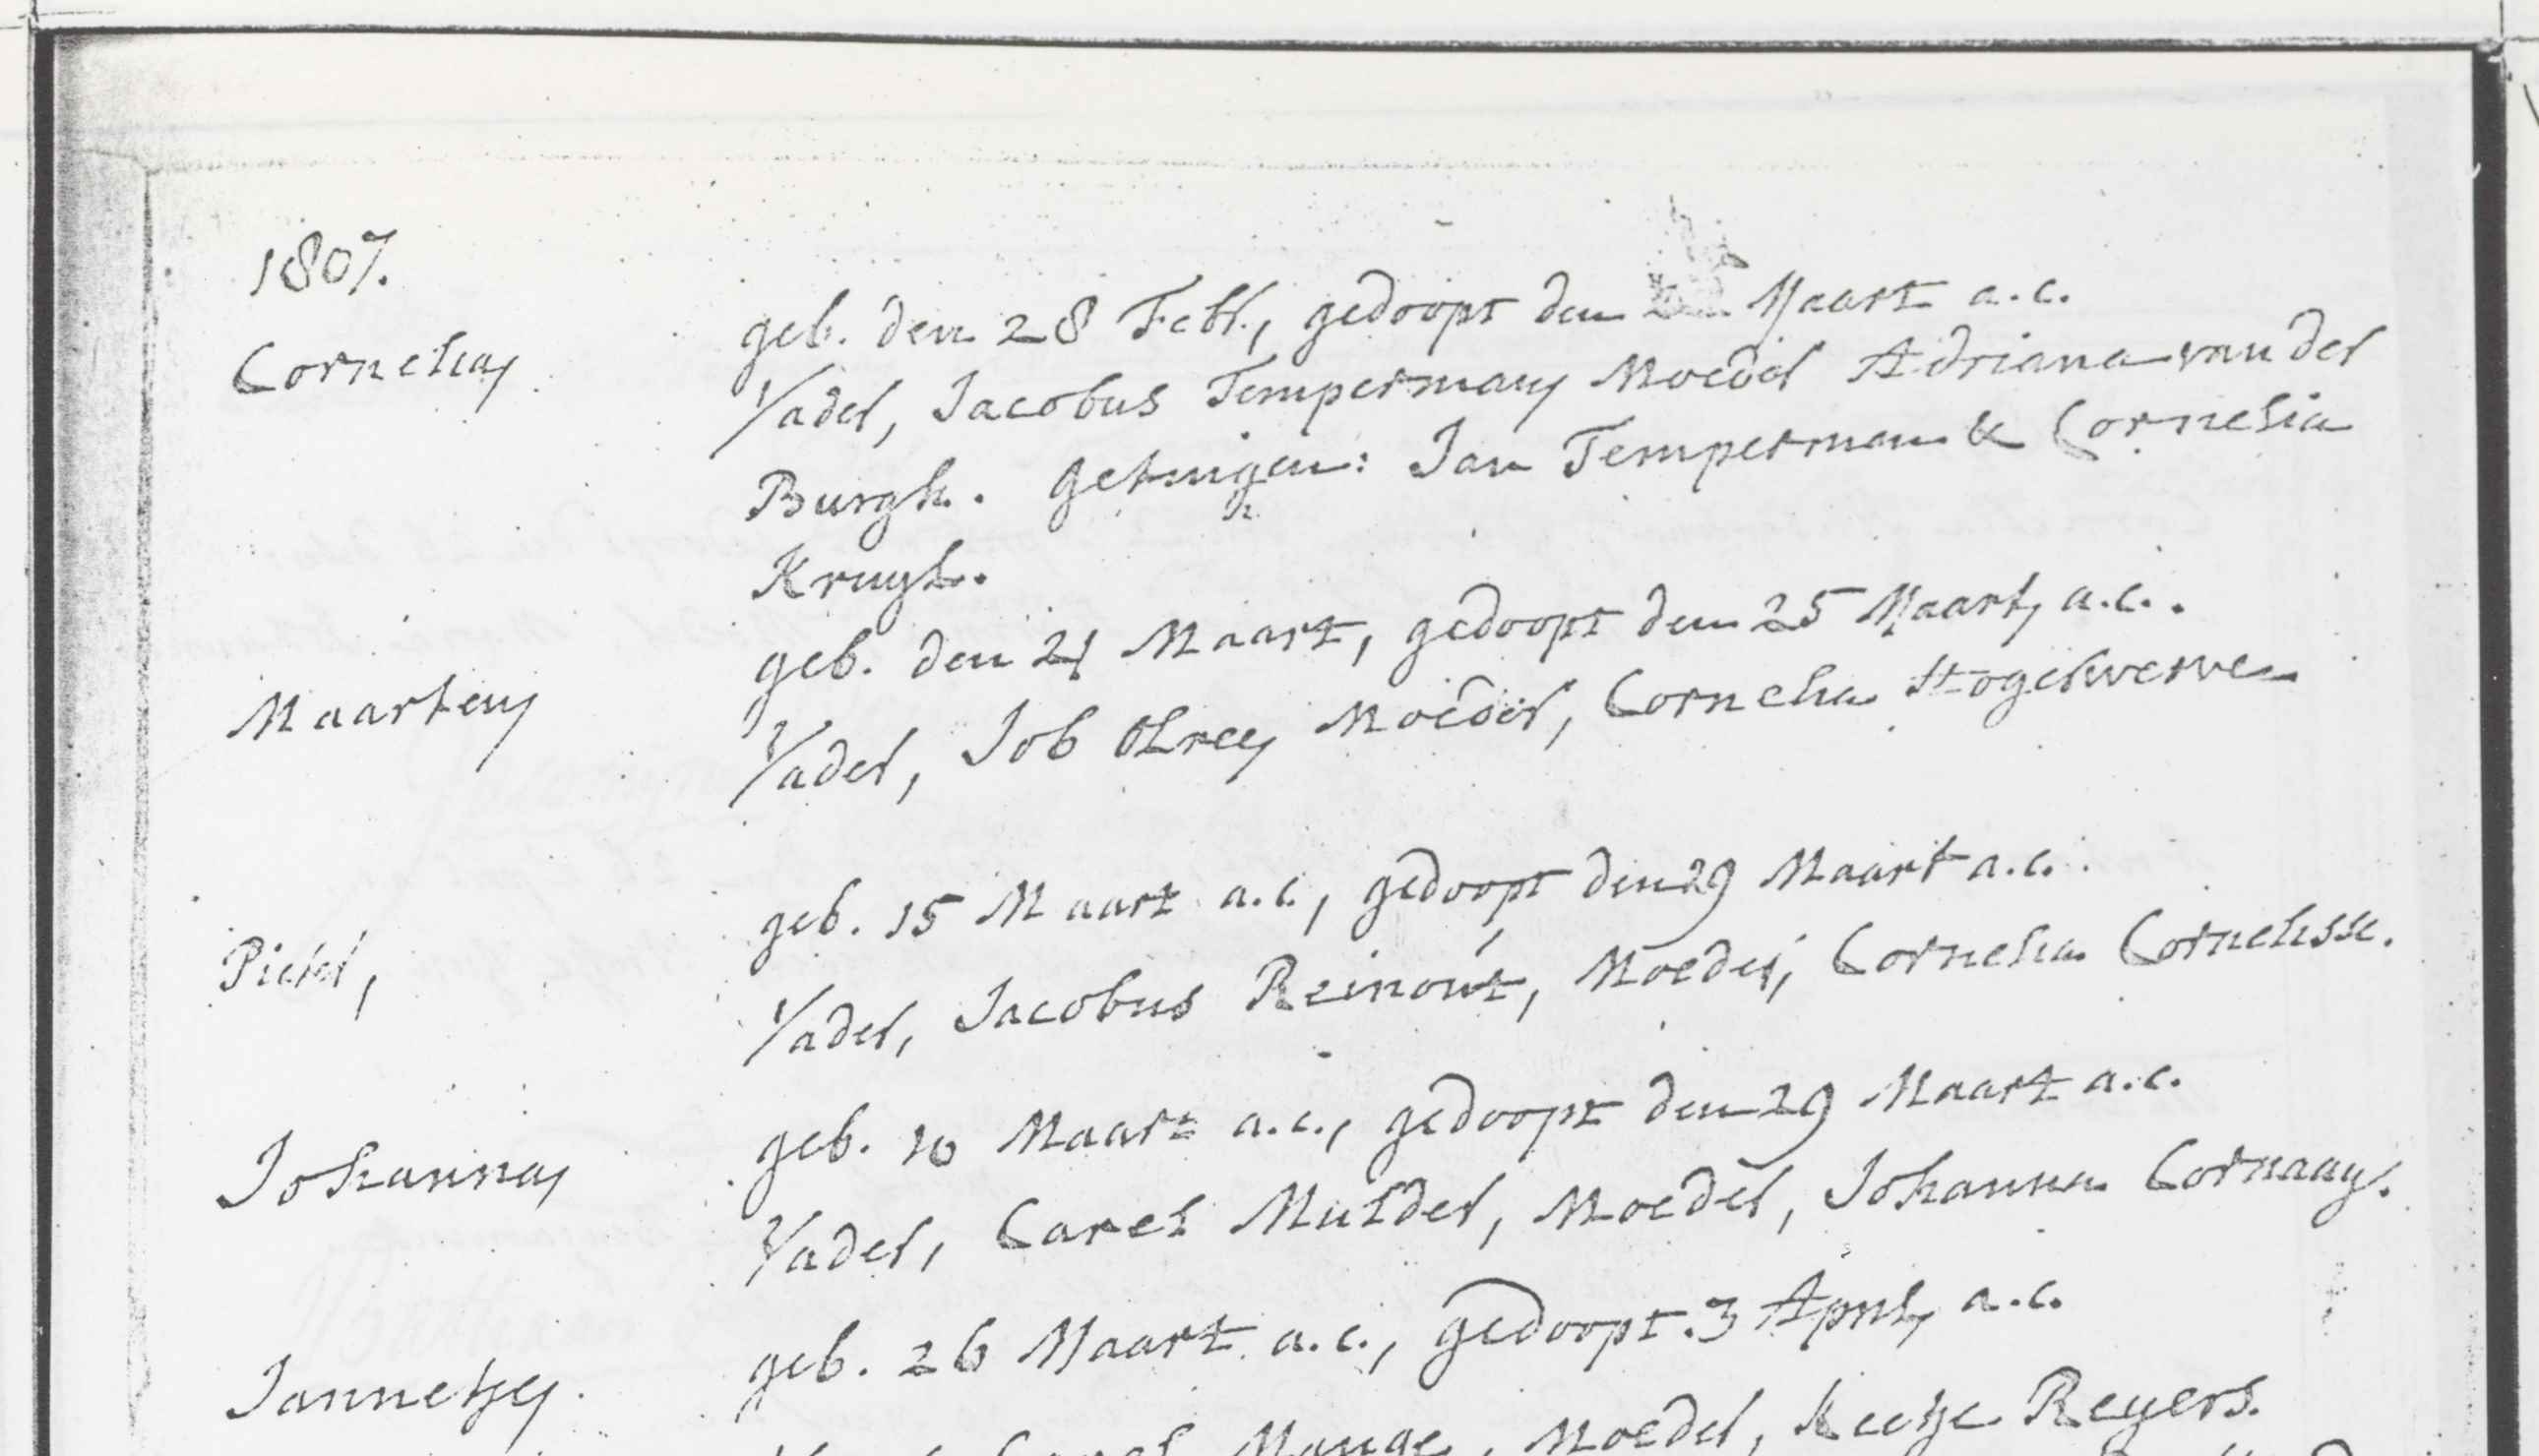 1807.
Cornelia, geb. den 28 Febr., gedoopt den Maart a.c.
Vader, Jacobus Temperman, Moeder Adriana van der
Burgh. Getuigen: Jan Temperman & Cornelia
Kruyk.
Maarten, geb. den 21 Maart, gedoopt den 25 Maart, a.c.
Vader, Job Moeder, Cornelia Hogerwerve
Pieter, geb. 15 Maart a.c., gedoopt den 29 Maart a.c.
Vader, Jacobus Reinout, Moeder, Cornelia Cornelisse.
Johanna, geb. 10 Maart a.c., gedoopt den 29 Maart a.c.
Vader, Carel Mulder, Moeder, Johanna Cornaay.
Jannetje, geb. 26 Maart a.c., gedoopt 3 April, a.c.
Carel Moeder, Keetje Reyers.